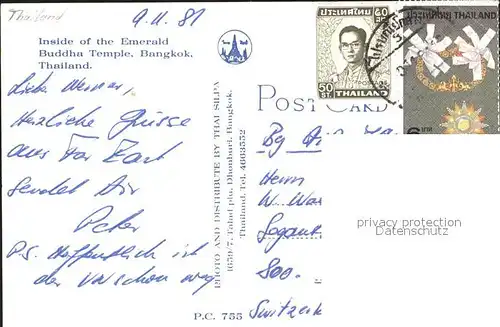 Thailand
9.11.81
Inside of the Emerald
Buddha Temple, Bangkok,
Thailand.
Liebe Werner,
Herzliche Grüsse
aus Far East
sendet Dir
Peter
P.S. Hoffentlich ist
weg
P.C. 755
PHOTO AND DISTRIBUTE BY THAI SILPA
1659/7, Taksil pla. Dhonburi, Bangkok.
Thailand. Tel. 4663552
ประเทศไทย ๕๐ สต.
50 ST. THAILAND
ประเทศไทย THAILAND
6 บาท
POST CARD
By Air
Herrn
W. War
800
Switzerl
privacy protection
Datenschutz